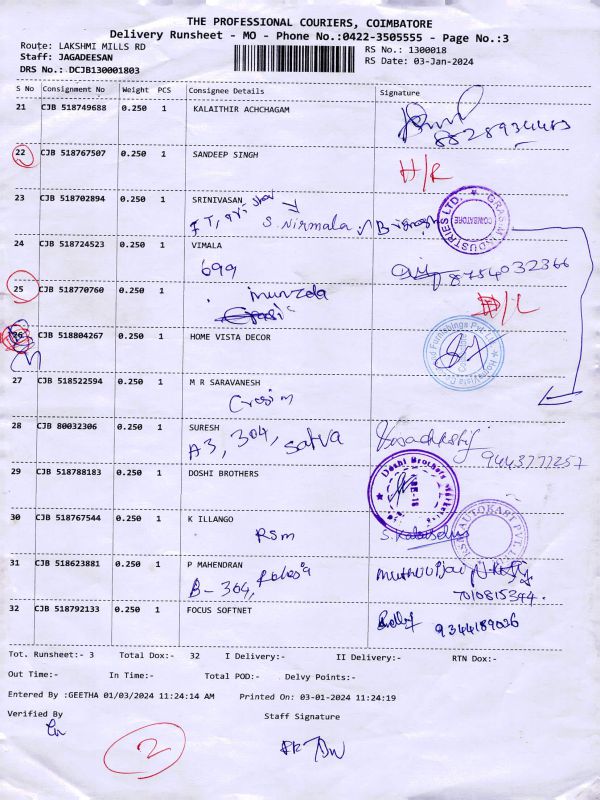 THE PROFESSIONAL COURIERS, COIMBATORE
Delivery Runsheet - MO - Phone No.:0422-3505555 - Page No.:3
Route: LAKSHMI MILLS RD
RS No.: 1300018
Staff: JAGADEESAN
RS Date: 03-Jan-2024
DRS No.: DCJB130001803
S No Consignment No Weight PCS Consignee Details Signature
21 CJB 518749688 0.250 1 KALAITHIR ACHCHAGAM
22 CJB 518767507 0.250 1 SANDEEP SINGH
H/R
23 CJB 518702894 0.250 1 SRINIVASAN
S. Nirmala
GRASIM INDUSTRIES LTD. COIMBATORE
24 CJB 518724523 0.250 1 VIMALA
699
8754032366
25 CJB 518770760 0.250 1
/L
26 CJB 518804267 0.250 1 HOME VISTA DECOR
27 CJB 518522594 0.250 1 M R SARAVANESH
28 CJB 80032306 0.250 1 SURESH
A3, 304, Satva
9443777257
29 CJB 518788183 0.250 1 DOSHI BROTHERS
Doshi Brothers
30 CJB 518767544 0.250 1 K ILLANGO
RSM
31 CJB 518623881 0.250 1 P MAHENDRAN
B-304,
7010815344
32 CJB 518792133 0.250 1 FOCUS SOFTNET
9344189036
Tot. Runsheet:- 3 Total Dox:- 32 I Delivery:- II Delivery:- RTN Dox:-
Out Time:- In Time:- Total POD:- Delvy Points:-
Entered By :GEETHA 01/03/2024 11:24:14 AM Printed On: 03-01-2024 11:24:19
Verified By Staff Signature
2